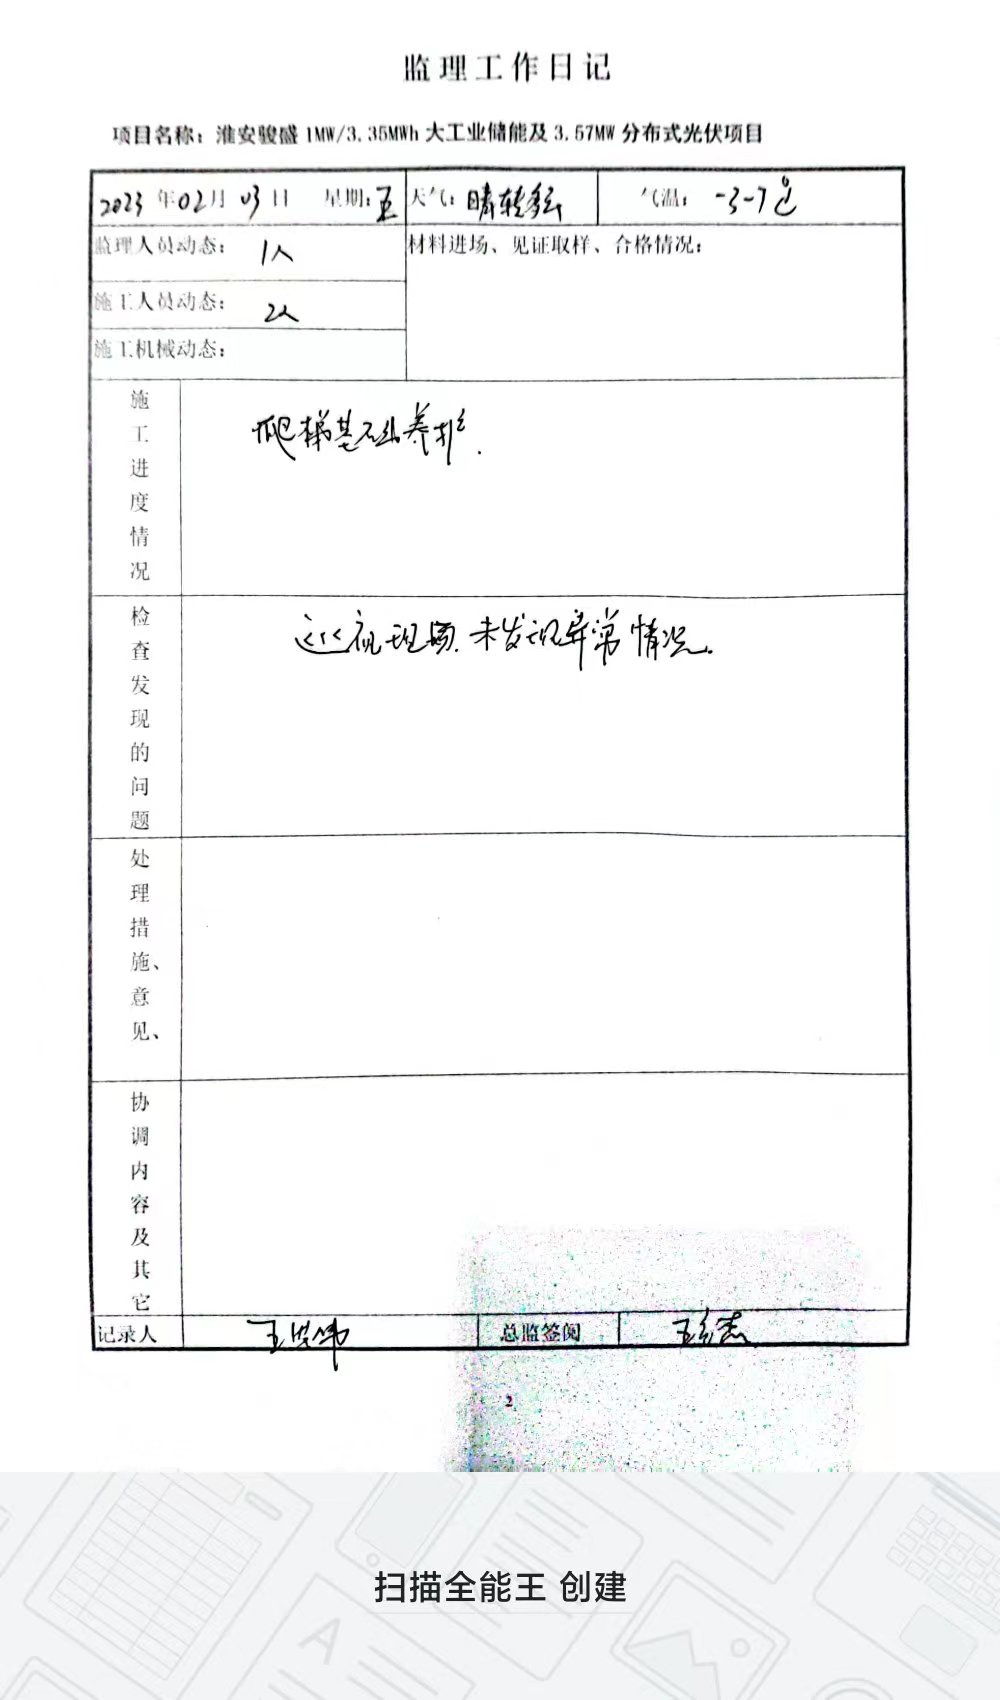 监理工作日记
项目名称：淮安骏盛 1MW/3.35MWh 大工业储能及 3.57MW 分布式光伏项目
2023 年 02 月 03 日 星期：五 天气：晴转多云 气温：-3-7℃
监理人员动态： 1人 材料进场、见证取样、合格情况：
施工人员动态： 2人
施工机械动态：
施工进度情况 爬梯基础养护.
检查发现的问题 巡视现场.未发现异常情况。
处理措施、意见、
协调内容及其它
记录人 总监签阅
2
扫描全能王 创建